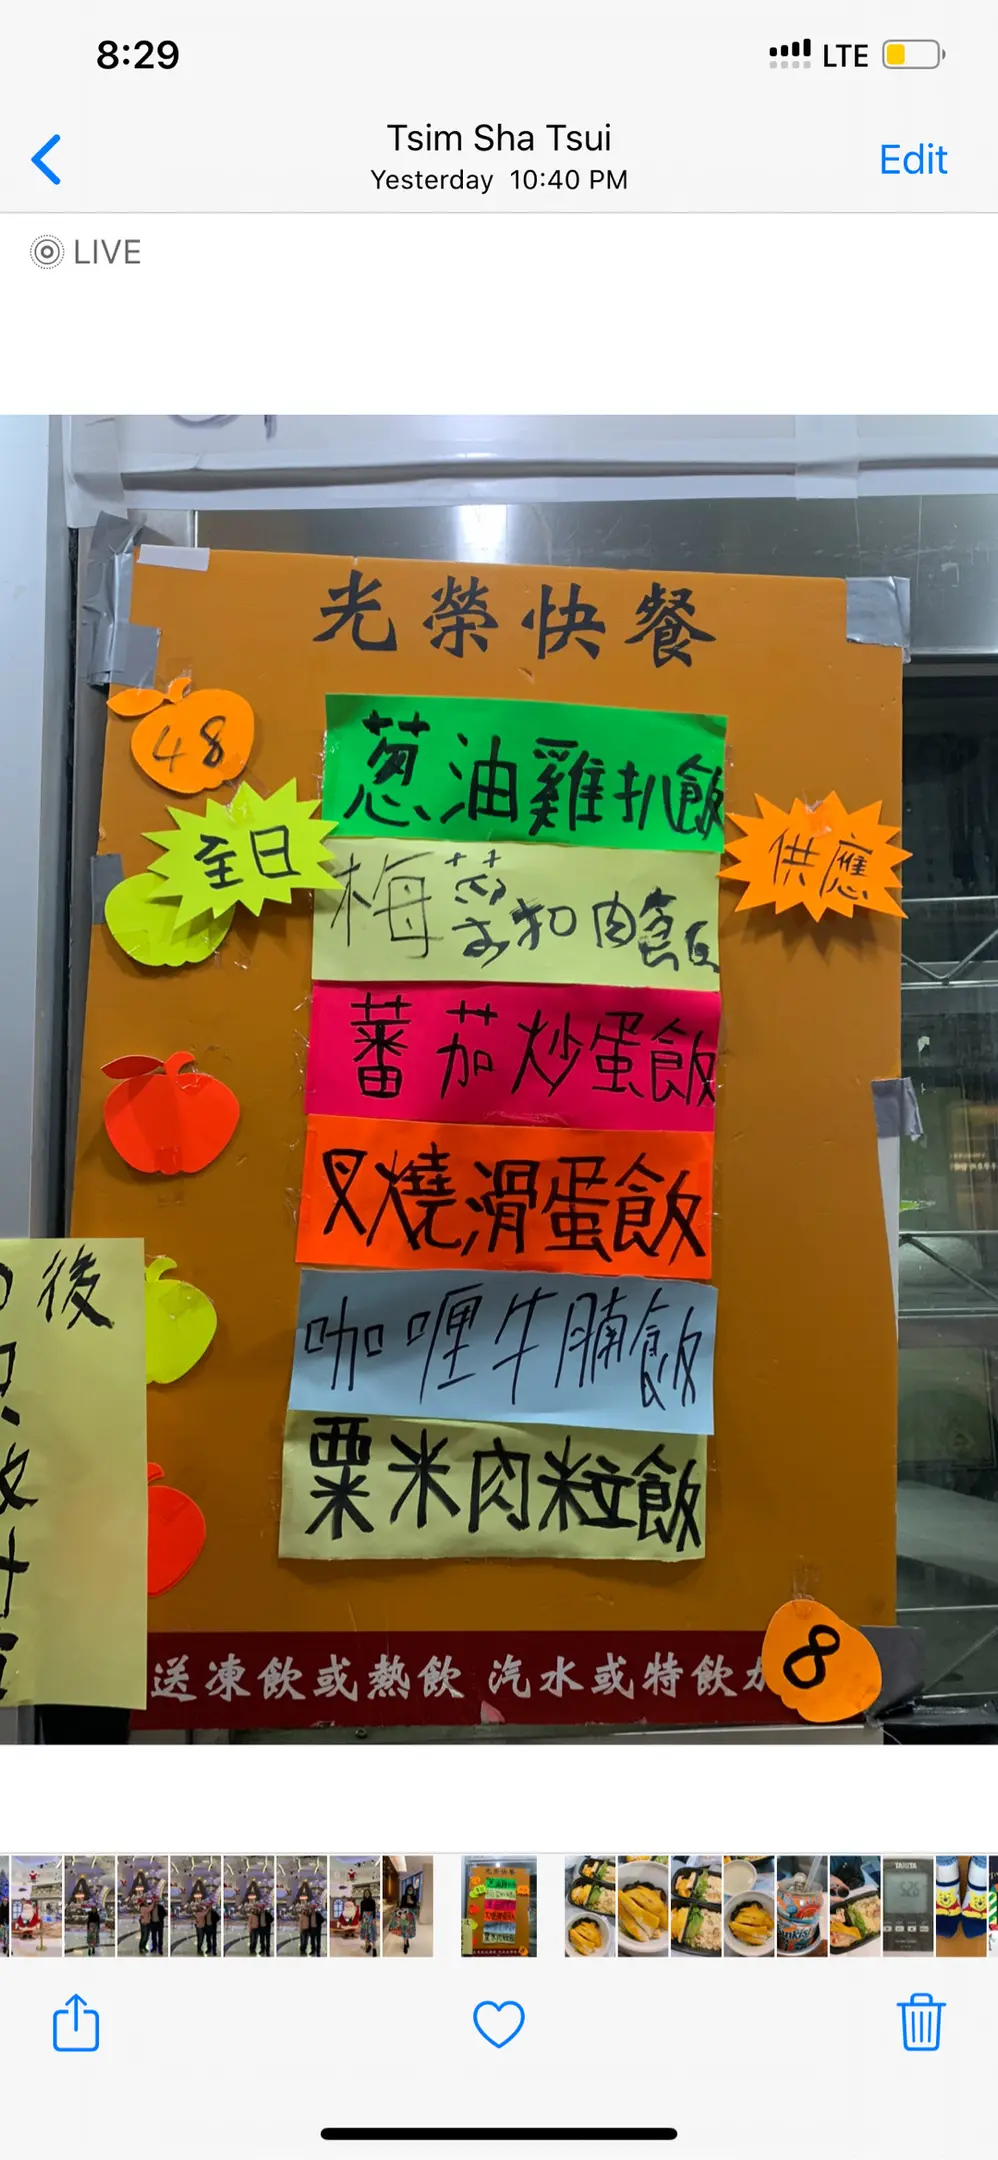 8:29
LTE
Tsim Sha Tsui
Yesterday 10:40 PM
Edit
LIVE
光榮快餐
48
葱油雞扒飯
全日
供應
梅菜扣肉飯
蕃茄炒蛋飯
叉燒滑蛋飯
後
咖喱牛腩飯
粟米肉粒飯
送凍飲或熱飲 汽水或特飲加
8
TANITA